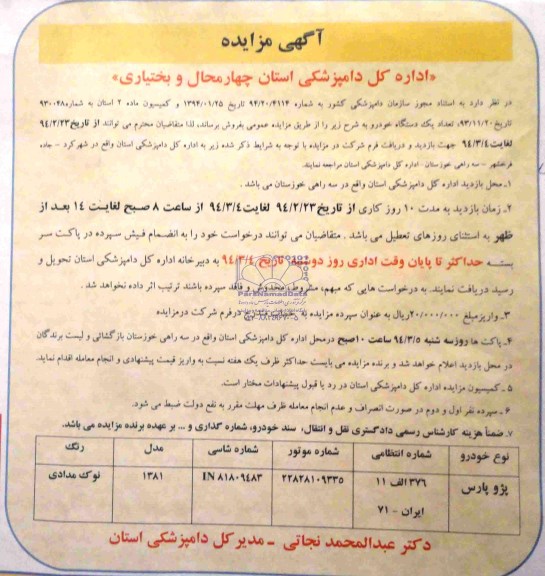 آگهی مزایده
«اداره کل دامپزشکی استان چهارمحال و بختیاری»
در نظر دارد به استناد مجوز سازمان دامپزشکی کشور به شماره ۹۴/۲۰/۴۱۱۴ تاریخ ۱۳۹۴/۰۱/۲۵ و کمیسیون ماده ۲ استان به شماره۹۳۰۰۴۸
تاریخ۹۳/۱۱/۲۰، تعداد یک دستگاه خودرو به شرح زیر را از طریق مزایده عمومی بفروش برساند، لذا متقاضیان محترم می توانند از تاریخ ۹۴/۲/۲۳
لغایت۹۴/۳/۴ جهت بازدید و دریافت فرم شرکت در مزایده با توجه به شرایط ذکر شده زیر به اداره کل دامپزشکی استان واقع در شهرکرد - جاده
فرخشهر - سه راهی خوزستان - اداره کل دامپزشکی استان مراجعه نمایند.
۱ـ محل بازدید اداره کل دامپزشکی استان واقع در سه راهی خوزستان می باشد .
۲ـ زمان بازدید به مدت ۱۰ روز کاری از تاریخ۹۴/۲/۲۳ لغایت۹۴/۳/۴ از ساعت ۸ صبح لغایت ۱۴ بعد از
ظهر به استثنای روزهای تعطیل می باشد . متقاضیان می توانند درخواست خود را به انضمام فیش سپرده در پاکت سر
بسته حداکثر تا پایان وقت اداری روز دوشنبه تاریخ ۹۴/۳/۴ به دبیرخانه اداره کل دامپزشکی استان تحویل و
رسید دریافت نمایند. به درخواست هایی که مبهم، مشروط، مخدوش و فاقد سپرده باشند ترتیب اثر داده نخواهد شد .
۳ـ واریزمبلغ ۲۰/۰۰۰/۰۰۰ریال به عنوان سپرده مزایده به درفرم شرکت درمزایده
۴ـ پاکت ها روزسه شنبه ۹۴/۳/۵ ساعت ۱۰صبح درمحل اداره کل دامپزشکی استان واقع در سه راهی خوزستان بازگشائی و لیست برندگان
در محل بازدید اعلام خواهد شد و برنده مزایده می بایست حداکثر ظرف یک هفته نسبت به واریز قیمت پیشنهادی و انجام معامله اقدام نماید.
۵ـ کمیسیون مزایده اداره کل دامپزشکی استان در رد یا قبول پیشنهادات مختار است.
۶ـ سپرده نفر اول و دوم در صورت انصراف و عدم انجام معامله ظرف مهلت مقرر به نفع دولت ضبط می شود.
۷ـ ضمناً هزینه کارشناس رسمی دادگستری نقل و انتقال، سند خودرو، شماره گذاری و ... بر عهده برنده مزایده می باشد.
نوع خودرو شماره انتظامی شماره موتور شماره شاسی مدل رنگ
پژو پارس ۳۷۶ الف ۱۱ ۲۲۸۲۸۱۰۹۳۳۵ IN ۸۱۸۰۹۴۸۳ ۱۳۸۱ نوک مدادی
ایران - ۷۱
دکتر عبدالمحمد نجاتی ـ مدیرکل دامپزشکی استان
ParsNamadData